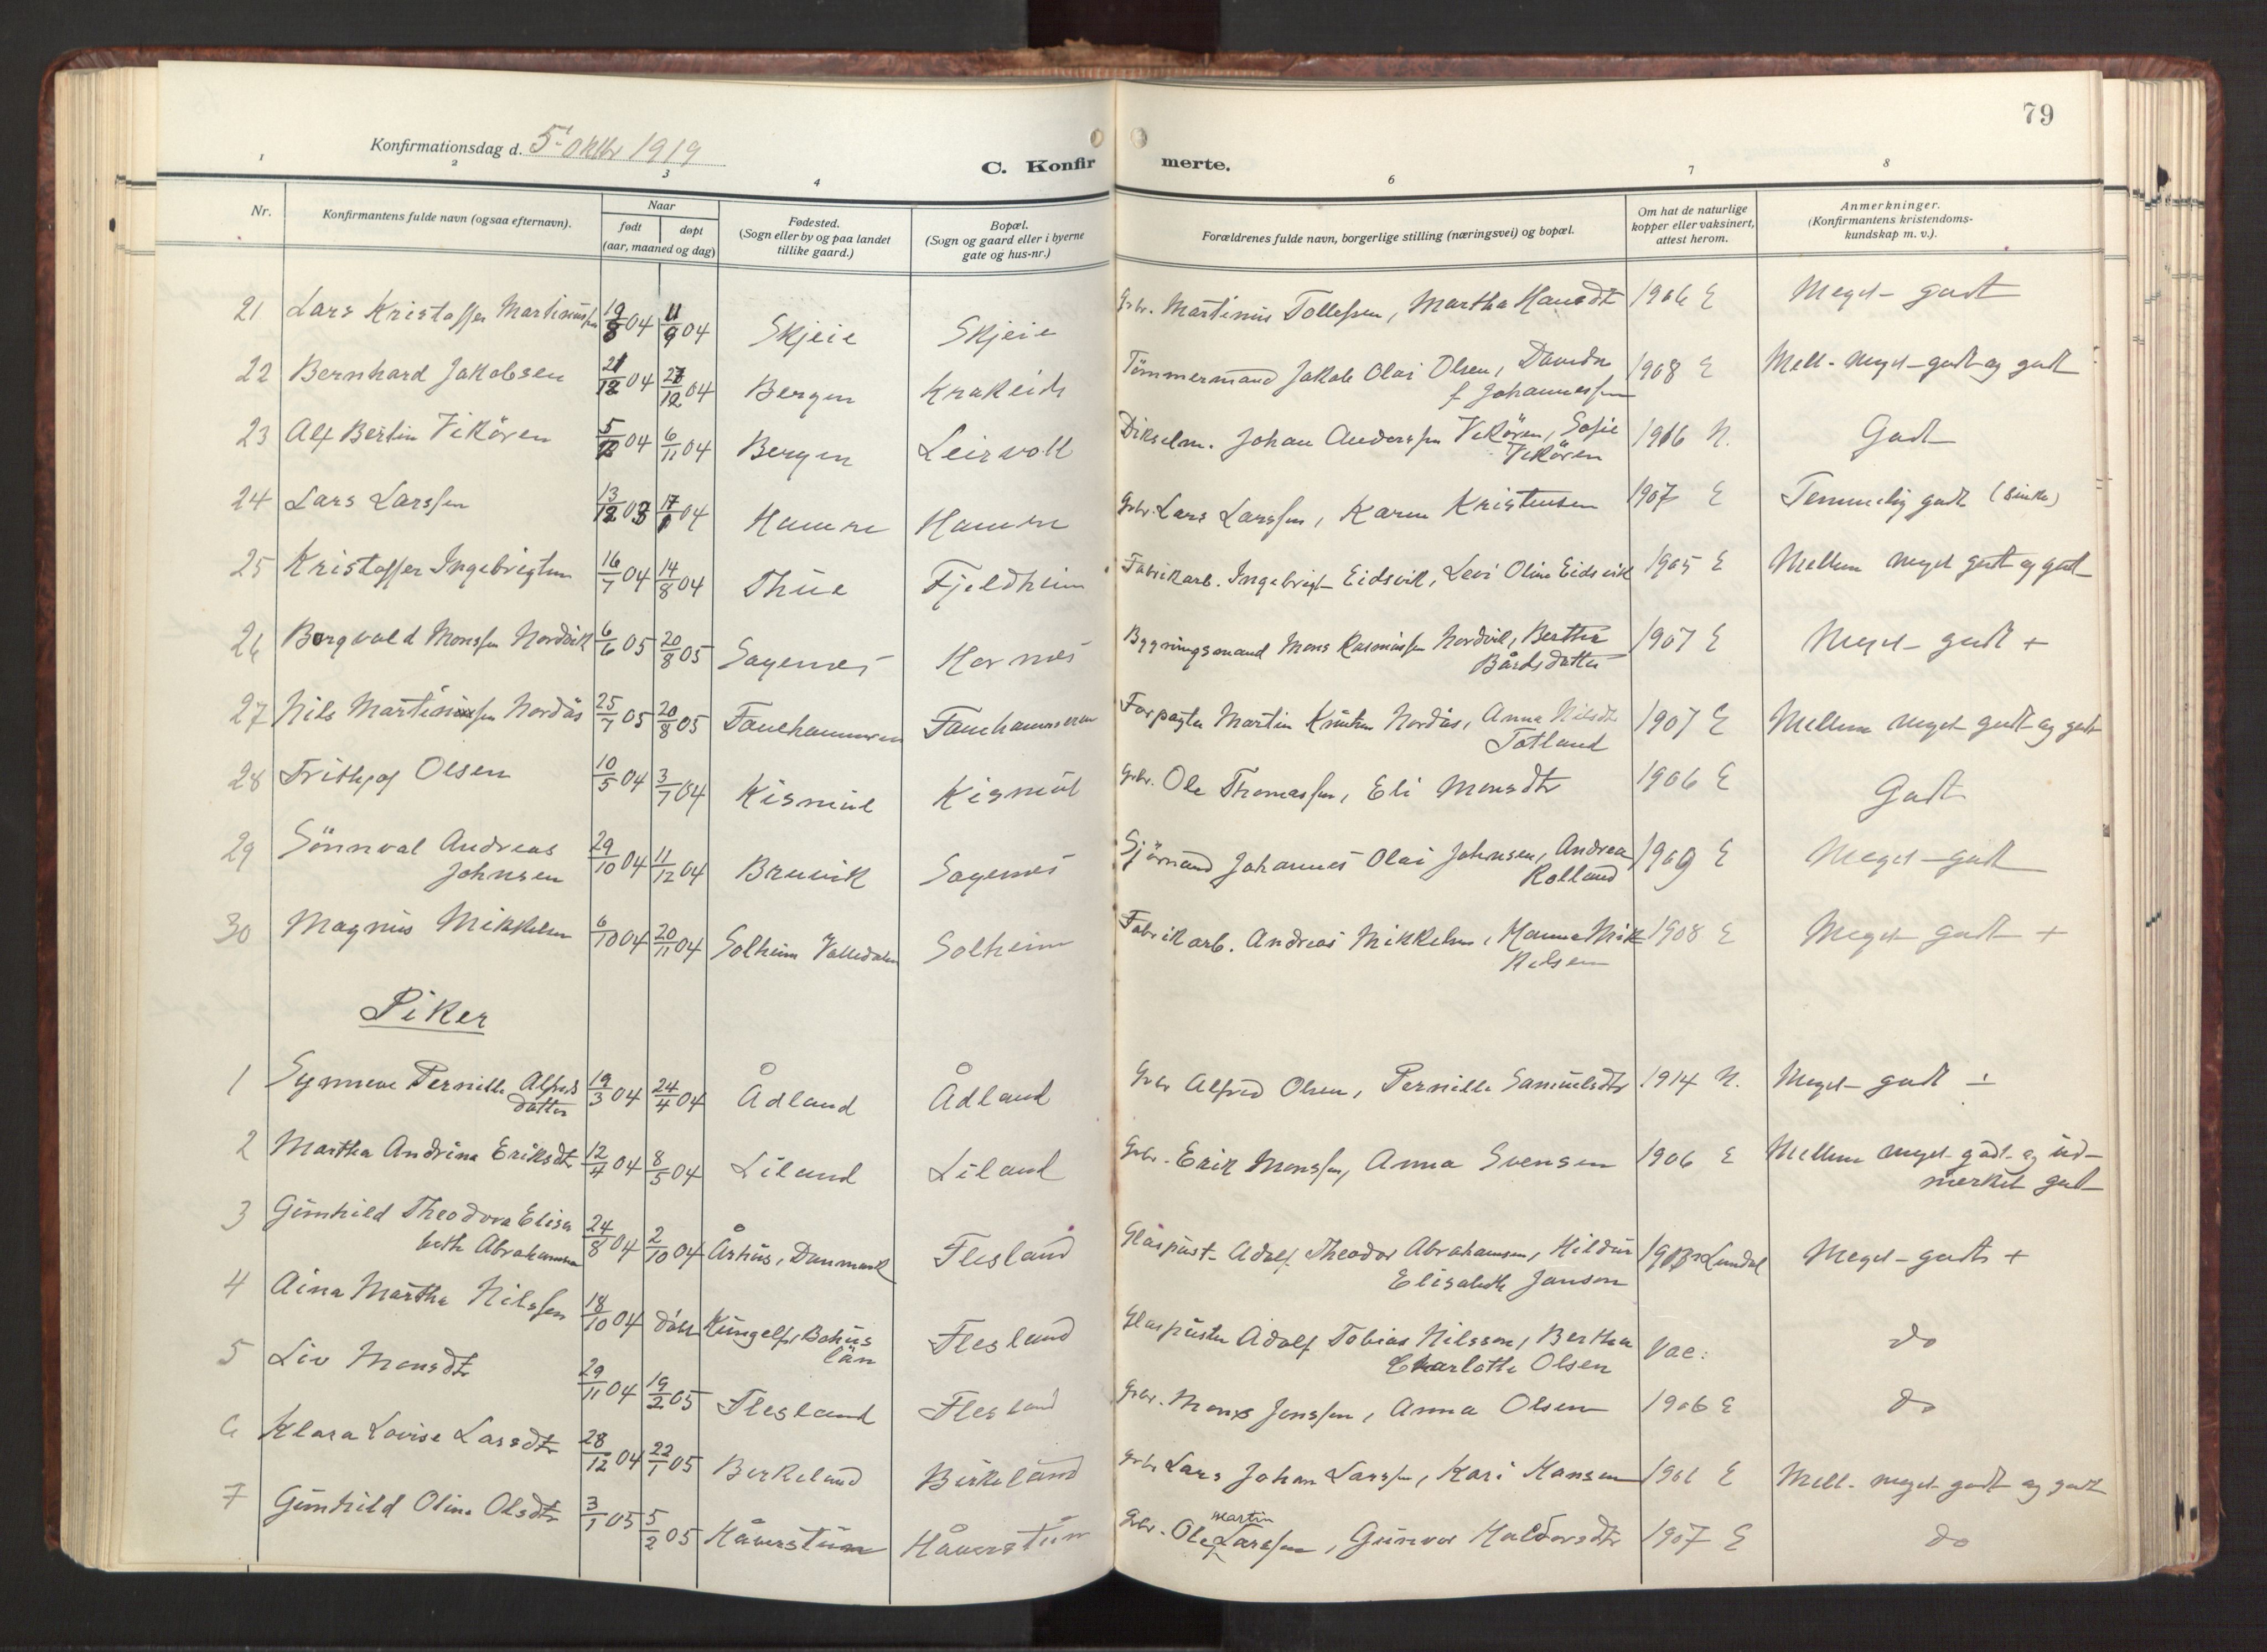 79
Konfirmationsdag d. 5' oktbr 1919
C. Konfir merte.
1 2 3 4 6 7 8
Nr. Konfirmantens fulde navn (ogsaa efternavn). Naar født døpt (aar, maaned og dag) Fødested. (Sogn eller by og paa landet tillike gaard.) Bopæl. (Sogn og gaard eller i byerne gate og hus-nr.) Forældrenes fulde navn, borgerlige stilling (næringsvei) og bopæl. Om hat de naturlige kopper eller vaksinert, attest herom. Anmerkninger. (Konfirmantens kristendoms- kundskap m. v.).
21 Lars Kristoffer Martinussen 19/8 04 11/9 04 Skjeie Skjeie Gbr. Martinus Tollefsen, Martha Hansdtr 1906 E Meget godt
22 Bernhard Jakobsen 21/12 04 27/12 04 Bergen Krakeide Tömmermand Jakob Olai Olsen, f Johannessen 1908 E Mell. meget godt og godt
23 Alf Bertin Vikören 5/ 04 6/11 04 Bergen Leirvoll Johan Anderssen Vikören, Sofie Vikören 1916 N. Godt
24 Lars Larssen 13/12 03 17/ 04 Hamre Hamre Gbr. Lars Larssen, Karen Kristensen 1907 E Temmelig godt
25 Kristoffer Ingebrigtsen 16/7 04 14/8 04 Thue Fjeldheim Fabrikarb. Ingebrigt Eidsvik, Levi Oline Eidsvik 1905 E Mellem meget godt og godt
26 Borgvald Monssen Nordvik 6/6 05 20/8 05 Sagenes Hornes Bygningsmand Mons Rasmussen Nordvik, Berthe Bårdsdatter 1907 E Meget godt +
27 Nils Martinssen Nordås 25/7 05 20/8 05 Fanehammeren Fanehammeren Forpagter Martin Knutsen Nordås, Anna Nilsdtr Totland 1907 E Mellem meget godt og godt
28 Frithjof Olsen 10/5 04 3/7 04 Kismul Kismul Gbr. Ole Thomassen, Eli Monsdtr 1906 E Godt
29 Sönnval Andreas Johnsen 29/10 04 11/12 04 Bruvik Sagenes Sjömand Johannes Olai Johnsen, Andrea Rolland 1909 E Meget godt
30 Magnus Mikkelsen 6/10 04 20/11 04 Solheim Solheim Fabrikarb. Andreas Mikkelsen, Hanna Mikkelsen 1908 E Meget godt +
Piker
1 Synneve Pernille Alfreds datter 19/3 04 24/4 04 Ådland Ådland Gbr Alfred Olsen, Pernille Samuelsdtr 1914 N. Meget godt ÷
2 Martha Andrina Eriksdtr 12/4 04 8/5 04 Liland Liland Gbr. Erik Monssen, Anna Svensen 1906 E Mellem meget godt og ud- merket godt
3 Gunhild Theodora Elisa beth Abrahamsen 24/8 04 2/10 04 Århus, Danmark Flesland Glaspust. Adolf Theodor Abrahamsen, Hildur Elisabeth Janson Lundal Meget godt +
4 Aina Martha Nilssen 18/10 04 döbt Kungelf, Bohus län Flesland Glaspuster Adolf Tobias Nilsson, Bertha Charlotte Olsen Vac: do
5 Liv Monsdtr 29/11 04 19/2 05 Flesland Flesland Gbr. Mons Jonssen, Anna Olsen 1906 E do
6 Klara Lovise Larsdtr 28/12 04 22/1 05 Birkeland Birkeland Gbr Lars Johan Larssen, Kari Hansen 1906 E Mell. meget godt og godt
7 Gunhild Oline Olsdtr 3/1 05 5/2 05 Håverstun Håverstun Gbr. Ole Martin Larssen, Gunvor Haldorsdtr 1907 E do